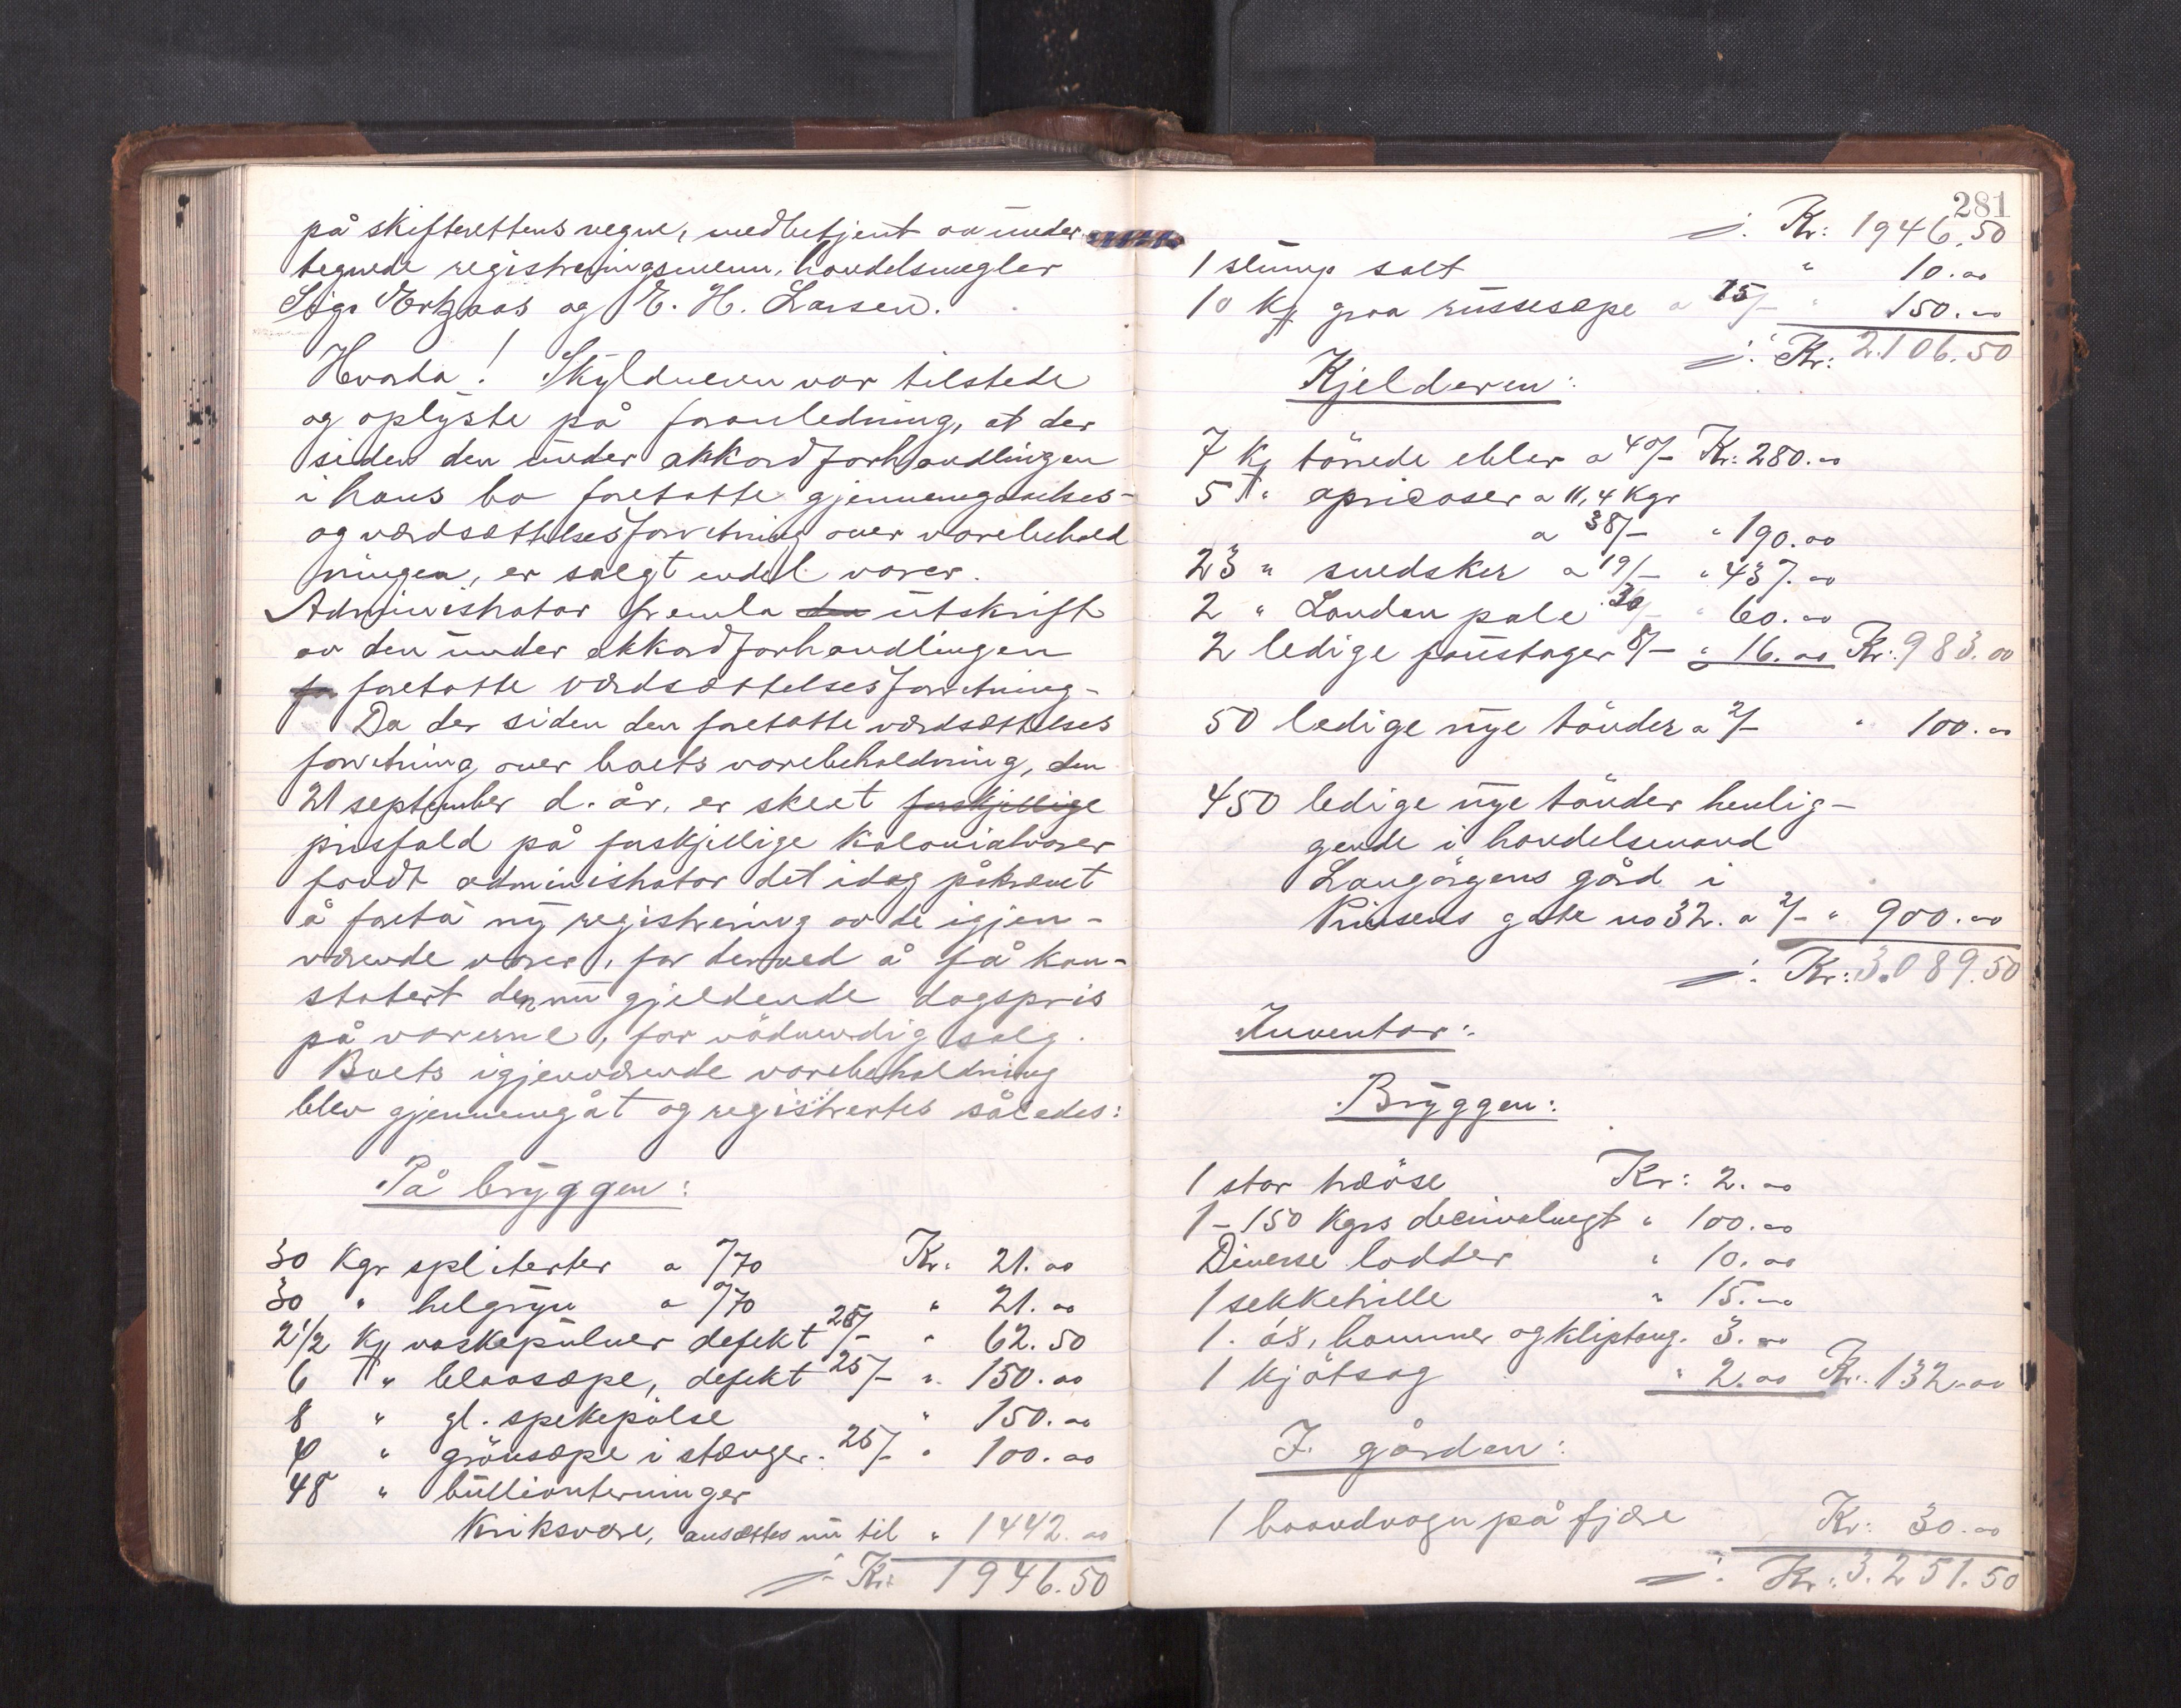 på skifterettens vegne, medbetjent av under-
tegnede registreringsmenn, handelsmegler
Sigv Ertzaas og E. H. Larsen.
Hvorda! Skyldneren var tilstede
og oplyste på foranledning, at der
siden den under akkordforhandlingen
i hans bo foretatte gjennemgaaelses-
og værdsættelsesforretning over varebehold
ningen, er solgt endel varer.
Administrator fremla den utskrift
av den under akkordforhandlingen
fo foretatte værdsættelsesforretning-
Da der siden den foretatte værdsættelses
forretning over boets varebeholdning, den
21 september d. år, er skeet forskjellige
prisfald på forskjellige kolonialvarer
fandt administrator det idag påkrævet
å foreta ny registrering av de igjen-
værende varer, for derved å få kon-
statert den nu gjeldende dagspris
på varerne, for nödvendig salg.
Boets igjenværende varebeholdning
blev gjennemgåt og registrertes således:
På bryggen:
30 Kgr spliterter a "/70 Kr: 21.00
30 " helgryn a "/70 " 21.00
2 1/2 Ks vaskepulver defekt 25/- " 62.50
6 " blaasæpe, defekt 25/- " 150.00
8 " gl. spekepölse " 150.00
4 " grönsæpe i stænger. 25/- " 100.00
48 " bullionterninger
Kriksvare, ansættes nu til " 1442.00
Kr: 1946.50
281
Kr: 1946.50
1 slump salt " 10.00
10 Ks graa russesæpe a 15/- " 150.00
Kr: 2.106.50
Kjelderen:
7 Ks törrede ebler a 40/- Kr: 280.00
5 " apricoser a 11,4 Kgr
a 38/- " 190.00
23 " svedsker a 19/- " 437.00
2 " London pale 30/- " 60.00
2 ledige faustager 8/- " 16.00 Kr: 983.00
50 ledige nye tönder a 2/- " 100.00
450 ledige nye tönder henlig-
gende i handelsmand
Langörgens gård i
Prinsens gate no 32. a 2/- " 900.00
Kr: 3.089.50
Inventar:
Bryggen:
1 stor træöse Kr: 2.00
1 - 150 Kgrs decimalvegt " 100.00
Diverse lodder " 10.00
1 sekketrille " 15.00
1. øs, hammer og kliptang. 3.00
1 kjötsag " 2.00 Kr: 132.00
I gården:
1 haandvogn på fjære Kr: 30.00
Kr: 3.251.50